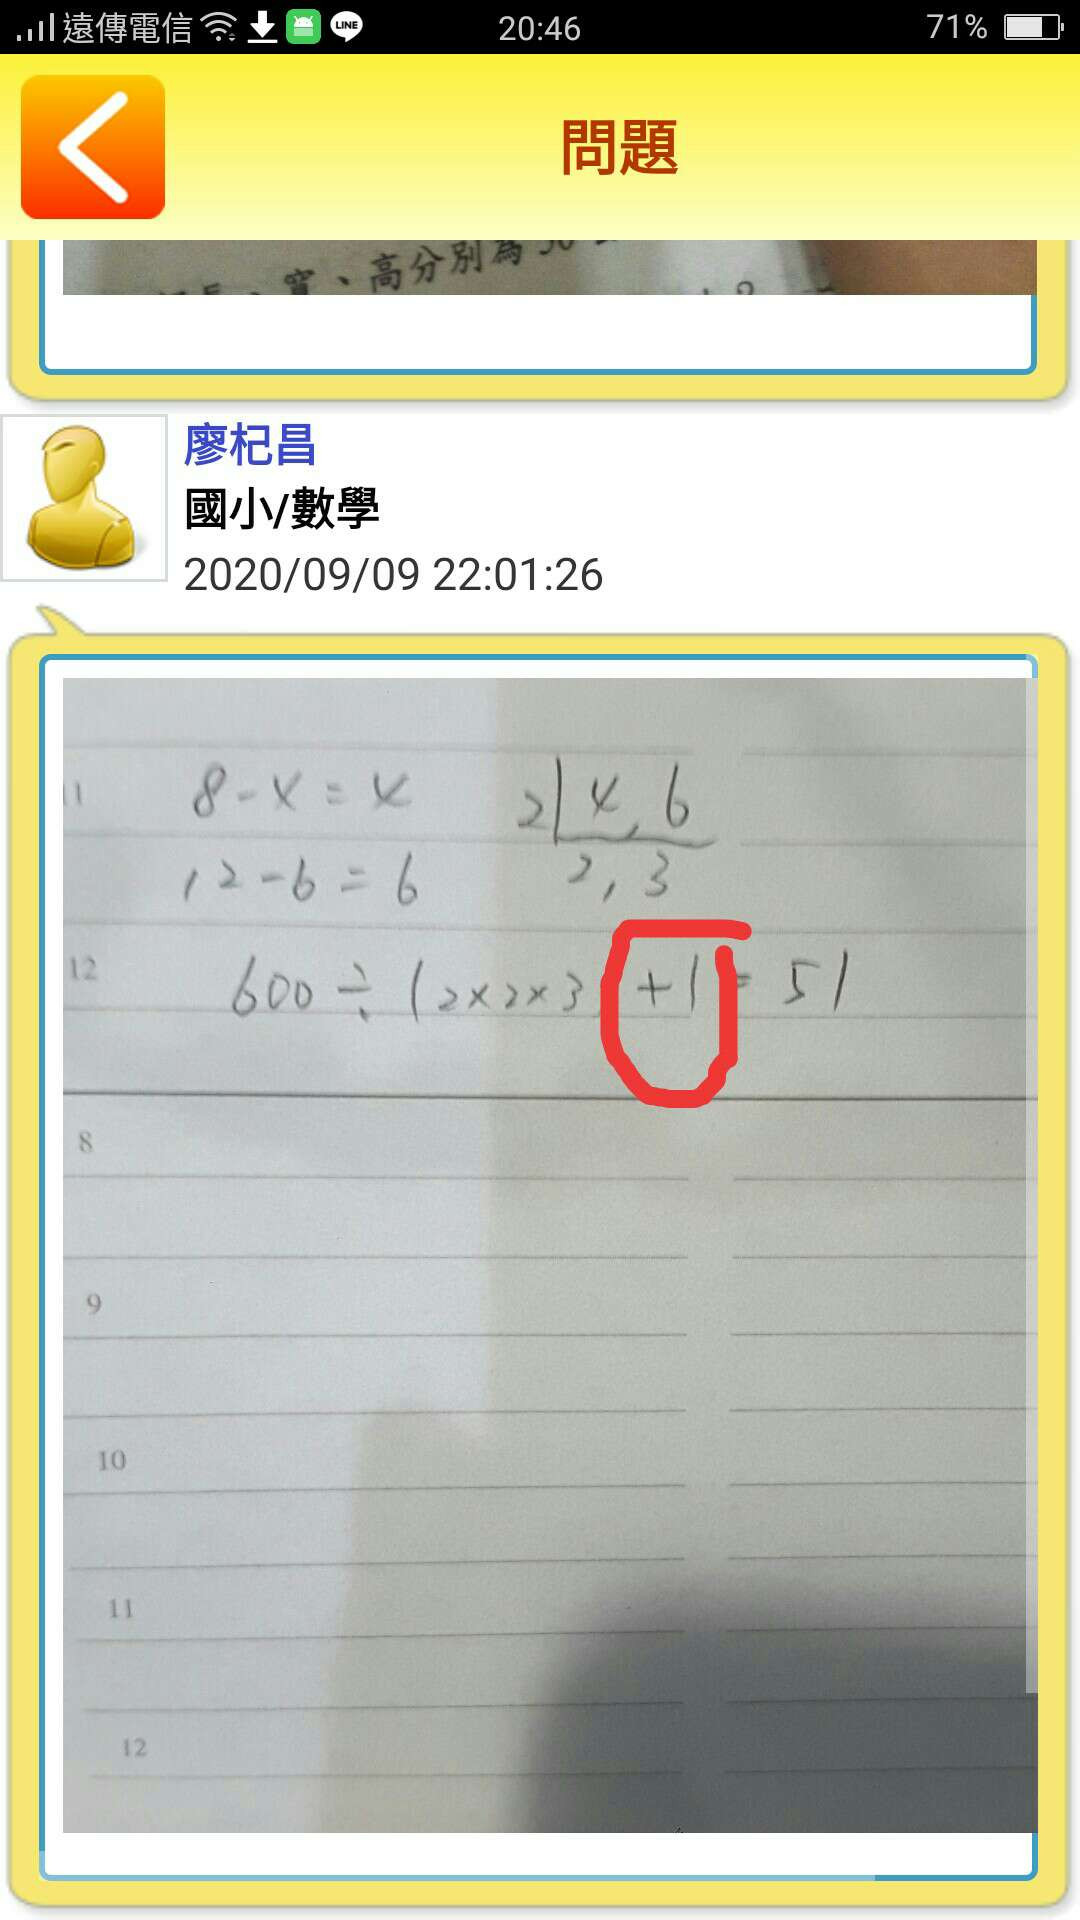 遠傳電信 LINE 20:46 71%
問題
、寬、高分別為 30
廖杞昌
國小/數學
2020/09/09 22:01:26
11 8-4=4 2 4,6
12-6=6 2,3
12 600÷(2×2×3)+1=51
8
9
10
11
12